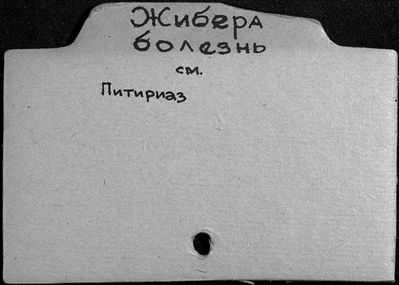 Жибера
болезнь
см.
Питириаз